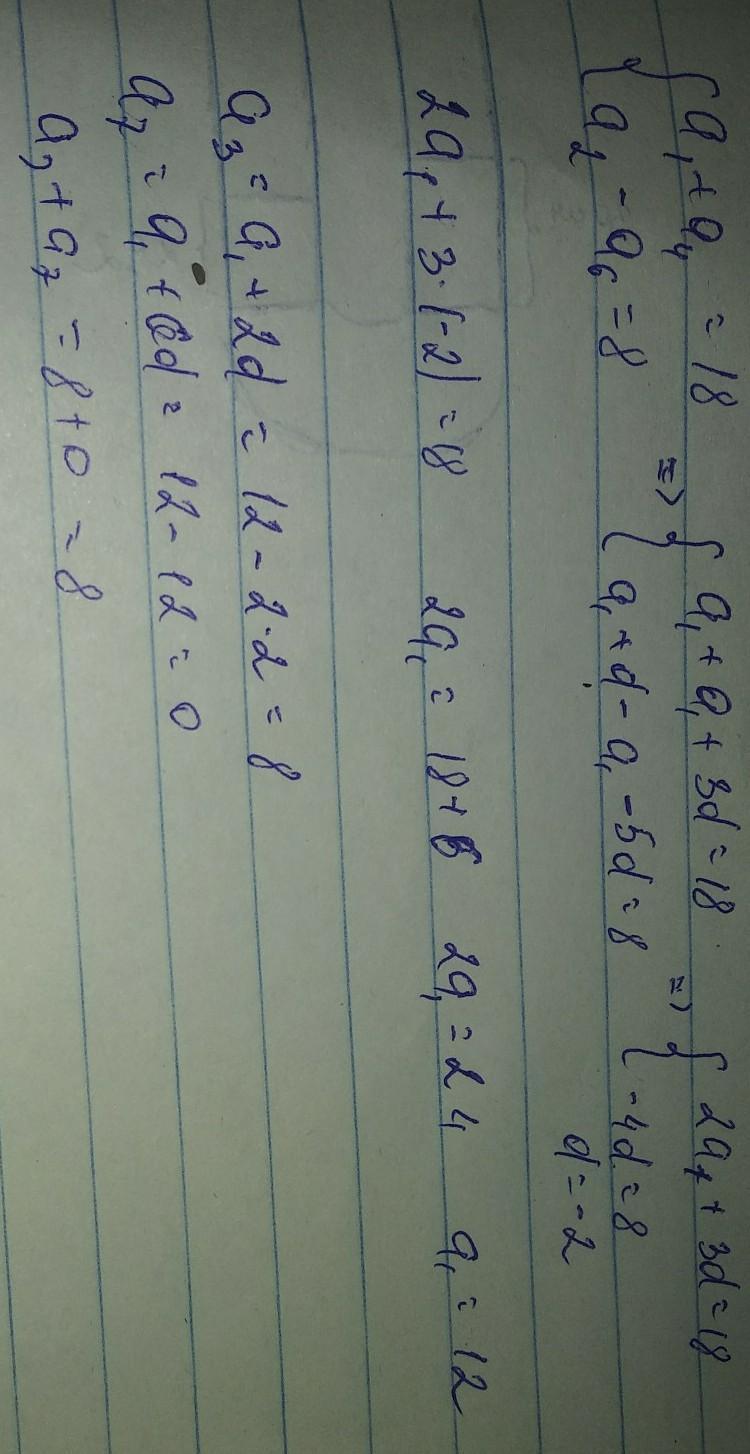 { a₁ + a₄ = 18 => { a₁ + a₁ + 3d = 18 => { 2a₁ + 3d = 18
{ a₂ - a₆ = 8 { a₁ + d - a₁ - 5d = 8 { -4d = 8
d = -2
2a₁ + 3·(-2) = 18 2a₁ = 18 + 6 2a₁ = 24 a₁ = 12
a₃ = a₁ + 2d = 12 - 2·2 = 8
a₇ = a₁ + 6d = 12 - 12 = 0
a₃ + a₇ = 8 + 0 = 8